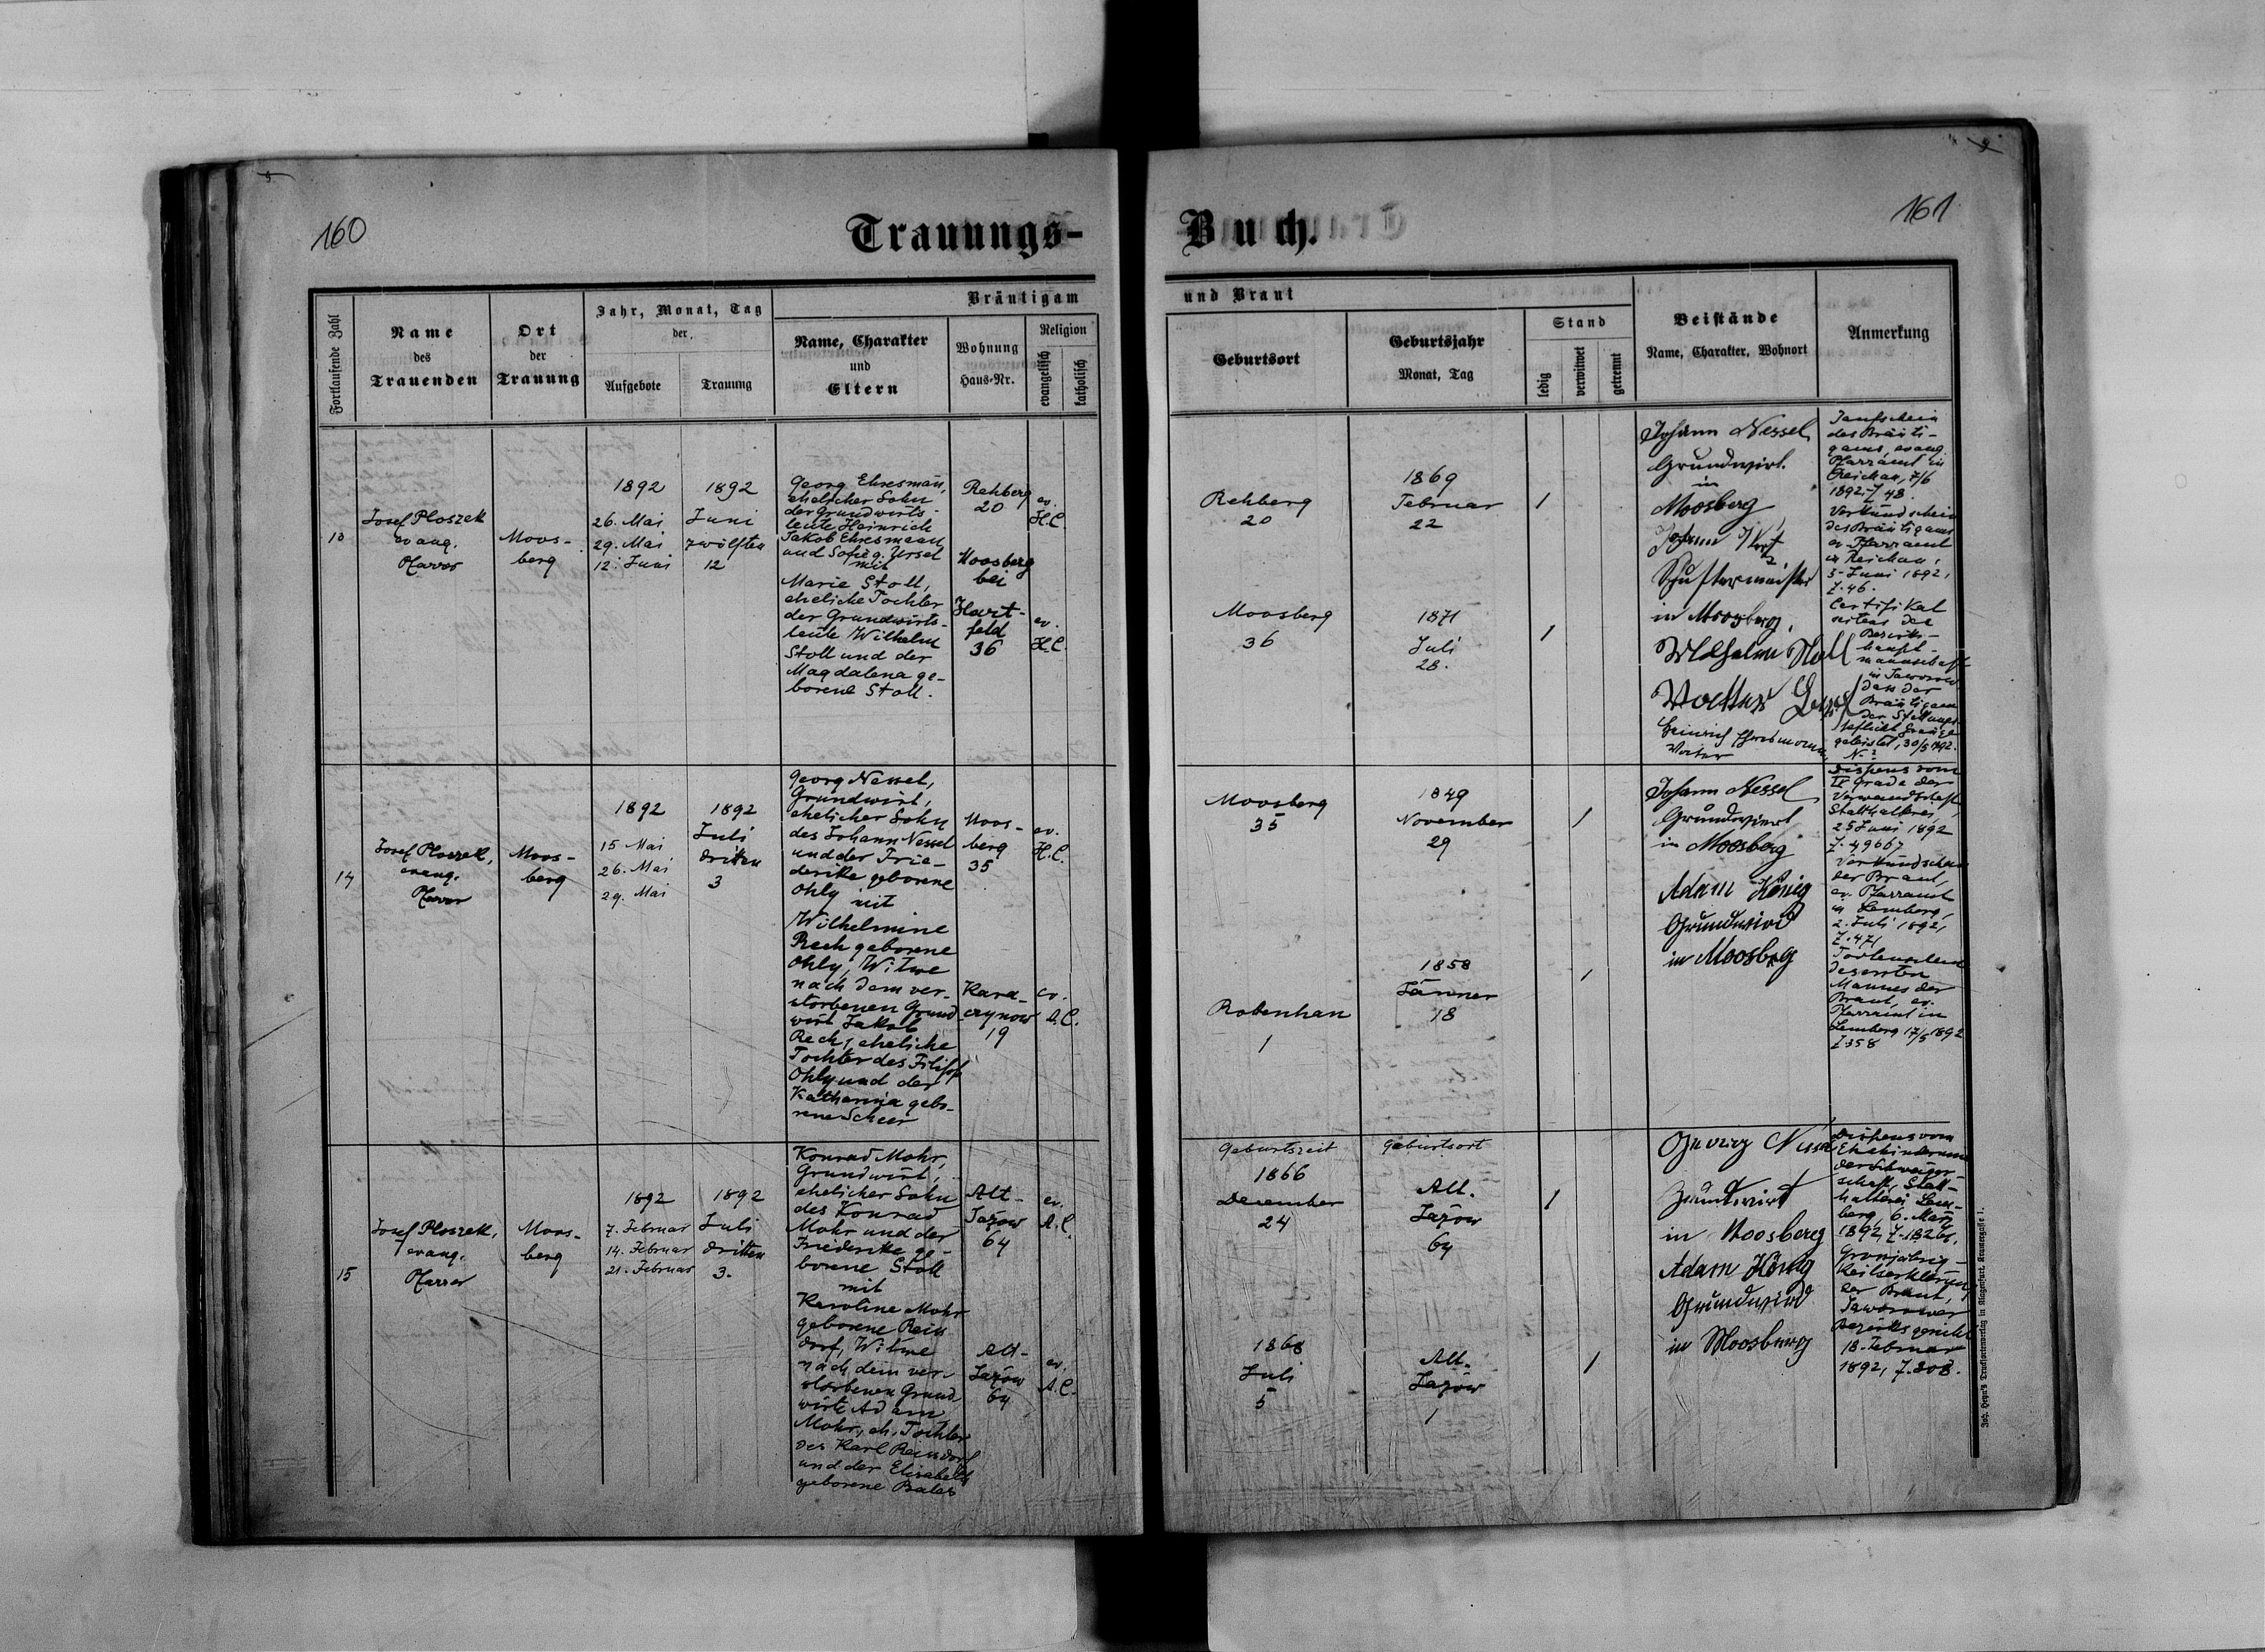 160
Trauungs-
Fortlaufende Zahl
Name
des
Trauenden
Ort
der
Trauung
Jahr, Monat, Tag
der
Aufgebote
Trauung
Bräutigam
Name, Charakter
und
Eltern
Wohnung
Haus-Nr.
Religion
evangelisch
katholisch
13
Josef Ploszek
evang.
Pfarrer
Moos-
berg
1892
26. Mai
29. Mai
12. Juni
1892
Juni
zwölften
12
Georg Ehresmann,
ehelicher Sohn
der Grundwirts-
leute Heinrich
Jakob Ehresmann
und Sofie g.
mit
Marie Stoll,
eheliche Tochter
der Grundwirts-
leute Wilhelm
Stoll und der
Magdalena ge-
borene Stoll.
Rehberg
20
Moosberg
bei
Hart-
feld
36
ev.
H.C.
ev.
H.C.
14
Josef Ploszek,
evang.
Pfarrer
Moos-
berg
1892
15 Mai
26. Mai
29. Mai
1892
Juli
dritten
3
Georg Nessel,
Grundwirt,
ehelicher Sohn
des Johann Nessel
und der Frie-
derike geborene
Ohly mit
Wilhelmine
Rech geborene
Ohly, Witwe
nach dem ver-
storbenen Grund
wirt Jakob
Rech, eheliche
Tochter des Filipp
Ohly und der
Katharina gebo-
rene Scheer
Moos-
berg
35
Kara-
czynow
19
ev.
H.C.
ev.
A.C.
15
Josef Ploszek,
evang.
Pfarrer
Moos-
berg
1892
7. Februar
14. Februar
21. Februar
1892
Juli
dritten
3.
Konrad Mohr,
Grundwirt,
ehelicher Sohn
des Konrad
Mohr und der
Friederike ge-
borene Stoll
mit
Karoline Mohr
geborene Rein
dorf, Witwe
nach dem ver-
storbenen Grund
wirte Adam
Mohr, eh. Tochter
des Karl Reindorf
und der Elisabeth
geborene
Alt-
Jazow
64
Alt-
Jazow
64
ev.
A.C.
ev.
A.C.
161
Buch.
und Braut
Geburtsort
Geburtsjahr
Monat, Tag
Stand
ledig
verwitwet
getrennt
Beistände
Name, Charakter, Wohnort
Anmerkung
Rehberg
20
1869
Februar
22
1
Moosberg
36
1871
Juli
28.
1
Johann Nessel
Grundwirt.
in
Moosberg
Johann
Schustermeister
in Moosberg,
Wilhelm Stoll
Vatter
Heinrich Ehresmann
Vater
Taufschein
des Bräuti-
gams, evang.
Pfarramt in
Reichau, 7/6
1892, Z 48.
Verkündschein
des Bräutigams
ev. Pfarramt
in Reichau,
5. Juni 1892,
Z. 46.
Certifikat
seitens der
Bezirks-
haupt-
mannschaft
in Jaworow
dass der
Bräutigam
der Stellungs-
pflicht Genüge
geleistet, 30/5 1892.
Moosberg
35
1849
November
29
1
Robenhan
1
1858
Jänner
18
1
Johann Nessel
Grundwirt
in Moosberg
Adam König
Grundwird
in Moosbrg
Dispens vom
Grade der
Verwandtschaft
Statthalterei,
25 Juni 1892
Z. 49667
Verkündschein
der Braut,
ev. Pfarramt
in Lemberg,
2. Juli 1892,
Z. 471
Todtenschein
des ersten
Mannes der
Braut, ev.
Pfarramt in
Lemberg 17/5 1892
Z. 358
Geburtszeit
1866
December
24
Geburtsort
Alt-
Jazow
64
1
1868
Juli
5
Alt-
Jazow
1
1
Georg Nessel
Grundwirt
in Moosberg
Adam König
Grundwird
in Moosburg
Dispens vom
Ehehindernis
der Schwäger-
schaft, Statt-
halterei Lem-
berg, 6. März
1892, Z. 18261.
Grossjährig-
keitserklärung
der Braut,
Jaworower
Bezirksgericht
18. Februar
1892, Z. 308.
Joh. Heyn's Drucksortenverlag in Klagenfurt, Kramergasse 1.